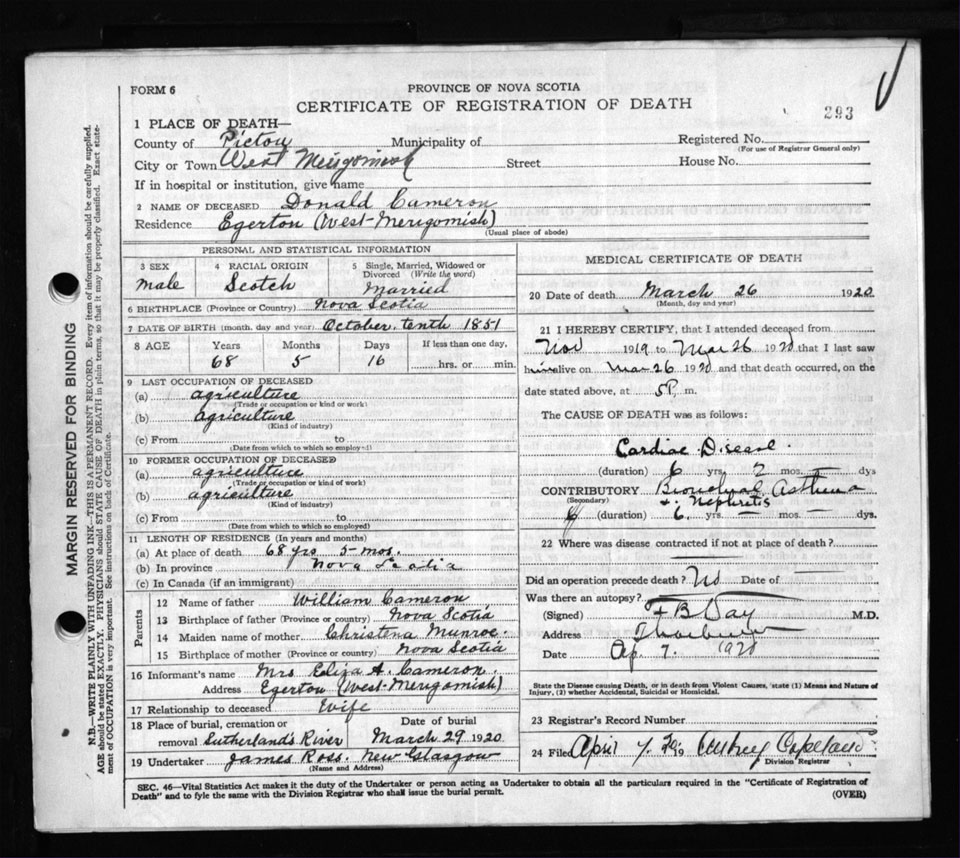 FORM 6
PROVINCE OF NOVA SCOTIA
CERTIFICATE OF REGISTRATION OF DEATH
293
1 PLACE OF DEATH—
County of Pictou Municipality of
Registered No.
(For use of Registrar General only)
City or Town West Merigomish Street House No.
If in hospital or institution, give name
2 NAME OF DECEASED Donald Cameron
Residence Egerton (West-Merigomish)
(Usual place of abode)
PERSONAL AND STATISTICAL INFORMATION
3 SEX 4 RACIAL ORIGIN 5 Single, Married, Widowed or Divorced (Write the word)
male Scotch Married
6 BIRTHPLACE (Province or Country) Nova Scotia
7 DATE OF BIRTH (month, day and year) October tenth 1851
8 AGE Years Months Days If less than one day,
68 5 16 hrs. or min.
9 LAST OCCUPATION OF DECEASED
(a) agriculture
(Trade or occupation or kind or work)
(b) agriculture
(Kind of industry)
(c) From to
(Date from which to which so employed)
10 FORMER OCCUPATION OF DECEASED
(a) agriculture
(Trade or occupation or kind of work)
(b) agriculture
(Kind of industry)
(c) From to
(Date from which to which so employed)
11 LENGTH OF RESIDENCE (In years and months)
(a) At place of death 68 yrs 5 mos.
(b) In province Nova Scotia
(c) In Canada (if an immigrant)
Parents
12 Name of father William Cameron
13 Birthplace of father (Province or country) Nova Scotia
14 Maiden name of mother Christena Munroe.
15 Birthplace of mother (Province or country) Nova Scotia
16 Informant's name Mrs Eliza A. Cameron.
Address Egerton (West-Merigomish)
17 Relationship to deceased Wife
18 Place of burial, cremation or Date of burial
removal Sutherlands River March 29 1920
19 Undertaker James Ross. New Glasgow
(Name and Address)
MEDICAL CERTIFICATE OF DEATH
20 Date of death March 26 1920
(Month, day and year)
21 I HEREBY CERTIFY, that I attended deceased from
Nov 1919 to Mar 26 1920 that I last saw
him alive on Mar 26 1920 and that death occurred, on the
date stated above, at 5P. m.
The CAUSE OF DEATH was as follows:
Cardiac Disease.
(duration) 6 yrs. 2 mos. — dys
CONTRIBUTORY Bronchial Asthma
(Secondary) + Nephritis
(duration) 6 yrs. — mos. — dys.
22 Where was disease contracted if not at place of death?
Did an operation precede death? No Date of —
Was there an autopsy?
(Signed) F B Day M.D.
Address Thorburn
Date Ap. 7. 1920
State the Disease causing Death, or in death from Violent Causes, state (1) Means and Nature of
Injury, (2) whether Accidental, Suicidal or Homicidal.
23 Registrar's Record Number
24 Filed April 7. 19 Aubrey Copeland
Division Registrar
SEC. 46—Vital Statistics Act makes it the duty of the Undertaker or person acting as Undertaker to obtain all the particulars required in the "Certificate of Registration of
Death" and to fyle the same with the Division Registrar who shall issue the burial permit.
(OVER)
MARGIN RESERVED FOR BINDING
N.B.—WRITE PLAINLY WITH UNFADING INK—THIS IS A PERMANENT RECORD. Every item of information should be carefully supplied.
AGE should be stated EXACTLY. PHYSICIANS should STATE CAUSE OF DEATH in plain terms, so that it may be properly classified. Exact state-
ment of OCCUPATION is very important. See instructions on back of Certificate.